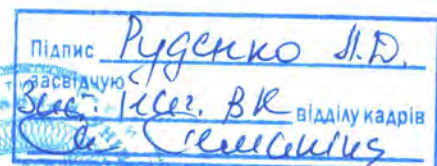 Підпис Руденко Л.D.
засвідчую
Заст. нач. ВК відділу кадрів